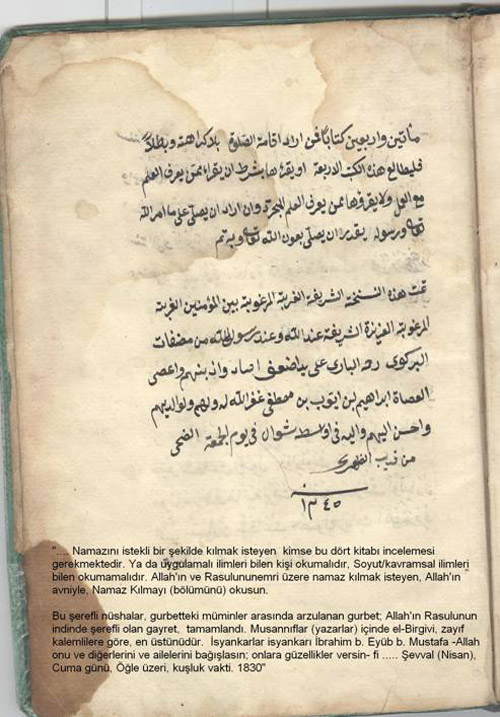 مأتين واربعين كتابا فمن اراد اقامة الصلوة بلا كراهة وبطلان
فليطالع هذه الكتب الاربعة او يقرءها بشرط ان يقراء ممن يعرف العلم
مع العمل ولا يقرؤها ممن يعرف العلم المجرد وان اراد ان يصلي على ما امر الله
تعالى ورسوله يقدر ان يصلي بعون الله تعالى وبه تم
تمت هذه النسخة الشريفة الغريبة المرغوبة بين المؤمنين الغريبة
المرغوبة العزيزة الشريفة عند الله وعند رسول الله من مصنفات
البركوي رحمه الباري على يد اضعف واعصى
العصاة ابراهيم بن ايوب بن مصطفى غفر الله له ولهم ولوالديهم
واحسن اليهم واليه في اواسط شوال في يوم الجمعة الضحى
من قريب الظهر
سنة
١٢٤٥
".... Namazını istekli bir şekilde kılmak isteyen kimse bu dört kitabı incelemesi
gerekmektedir. Ya da uygulamalı ilimleri bilen kişi okumalıdır, Soyut/kavramsal ilimleri
bilen okumamalıdır. Allah'ın ve Rasulununemri üzere namaz kılmak isteyen, Allah'ın
avniyle, Namaz Kılmayı (bölümünü) okusun.
Bu şerefli nüshalar, gurbetteki müminler arasında arzulanan gurbet; Allah'ın Rasulunun
indinde şerefli olan gayret, tamamlandı. Musannıflar (yazarlar) içinde el-Birgivi, zayıf
kalemlilere göre, en üstünüdür. İsyankarlar isyankarı İbrahim b. Eyüb b. Mustafa -Allah
onu ve diğerlerini ve ailelerini bağışlasın; onlara güzellikler versin- fi ..... Şevval (Nisan),
Cuma günü, Öğle üzeri, kuşluk vakti. 1830"